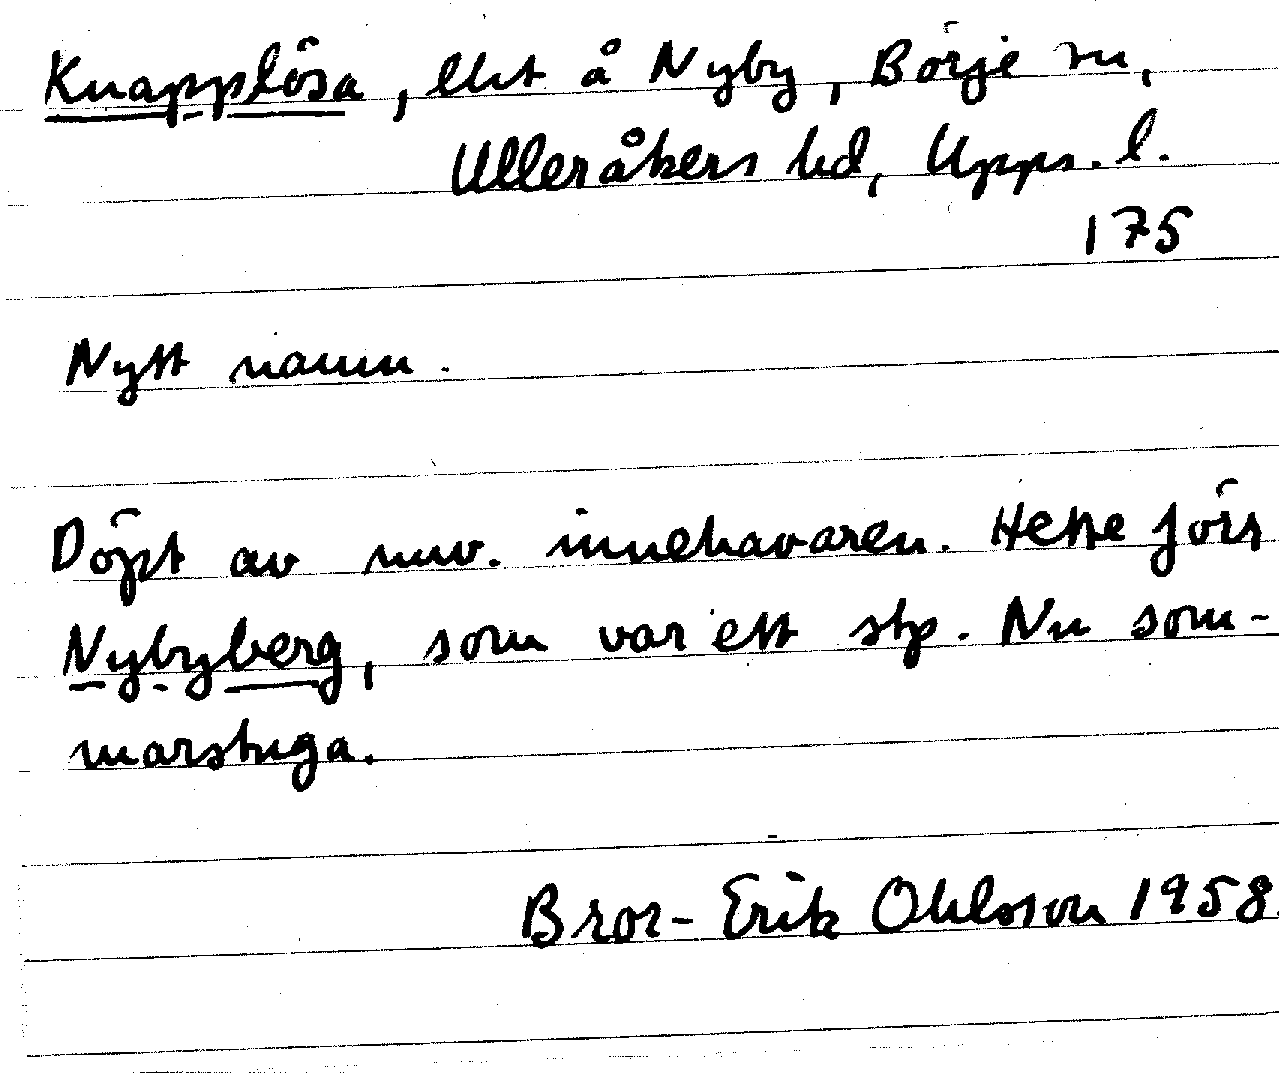 Knapplösa, lht å Nyby, Börje sn,
Ulleråkers hd, Upps. l.
175
Nytt namn.
Döpt av nuv. innehavaren. Hette förs
Nybyberg, som var ett stp. Nu som-
marstuga.
Bror-Erik Ohlsson 1958.